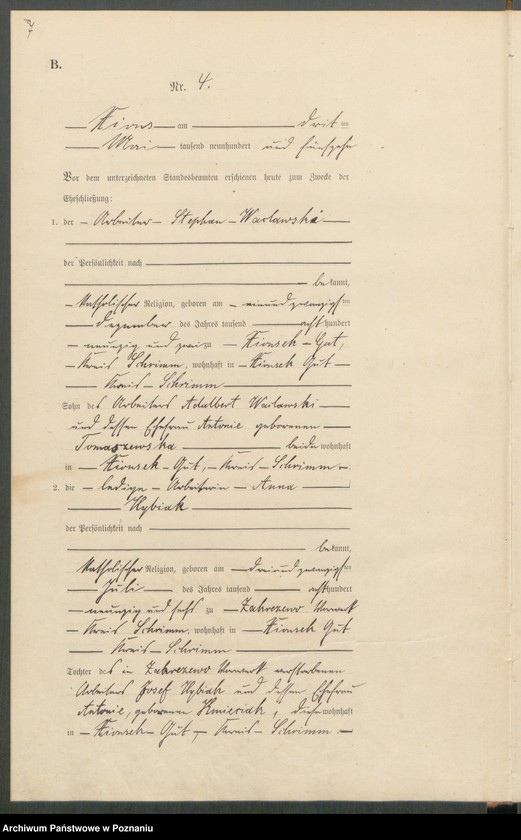 B.
Nr. 4.
Xions am drit ten
Mai tausend neunhundert und fünfzehn
Vor dem unterzeichneten Standesbeamten erschienen heute zum Zwecke der
Eheschließung:
1. der Arbeiter Stephan Wacławski
der Persönlichkeit nach
be kannt,
katholischer Religion, geboren am einundzwanzigsten
Dezember des Jahres tausend acht hundert
neunzig und zwei zu Xionsek-Gut,
Kreis Schrimm, wohnhaft in Xionsek Gut
Kreis Schrimm
Sohn des Arbeiters Adalbert Wacławski
und dessen Ehefrau Antonie geborenen
Tomaszewska beide wohnhaft
in Xionsek-Gut, Kreis Schrimm.
2. die ledige Arbeiterin Anna
Hybiak
der Persönlichkeit nach
be kannt,
katholischer Religion, geboren am dreiundzwanzigsten
Juli des Jahres tausend acht hundert
neunzig und sechs zu Zabrezewo Vorwerk
Kreis Schrimm, wohnhaft in Xionsek Gut
Kreis Schrimm
Tochter des in Zabrezewo Vorwerk verstorbenen
Arbeiters Josef Hybiak und dessen Ehefrau
Antonie, geborenen Kmieciak, diese wohnhaft
in Xionsek Gut, Kreis Schrimm
Archiwum Państwowe w Poznaniu